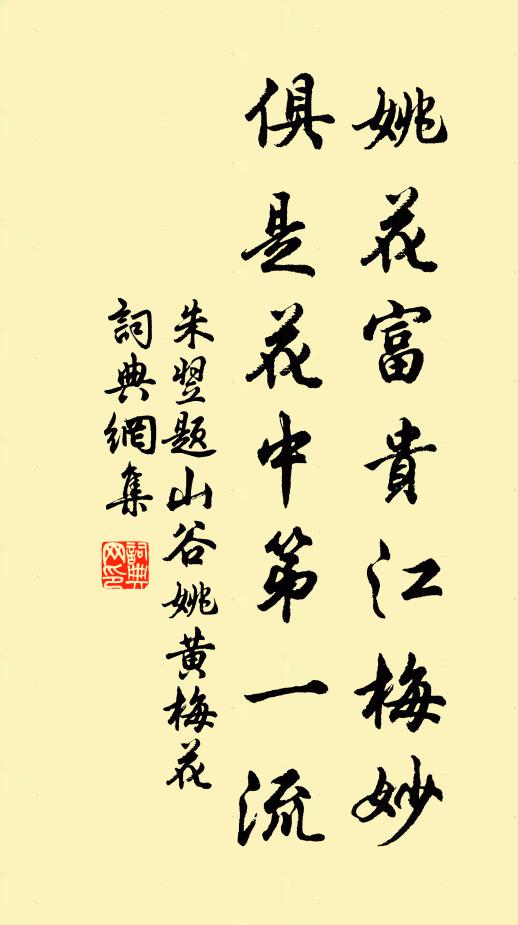 姚花富貴江梅妙
俱是花中第一流
朱翌題山谷姚黄梅花
詞典網集
詞典
网印